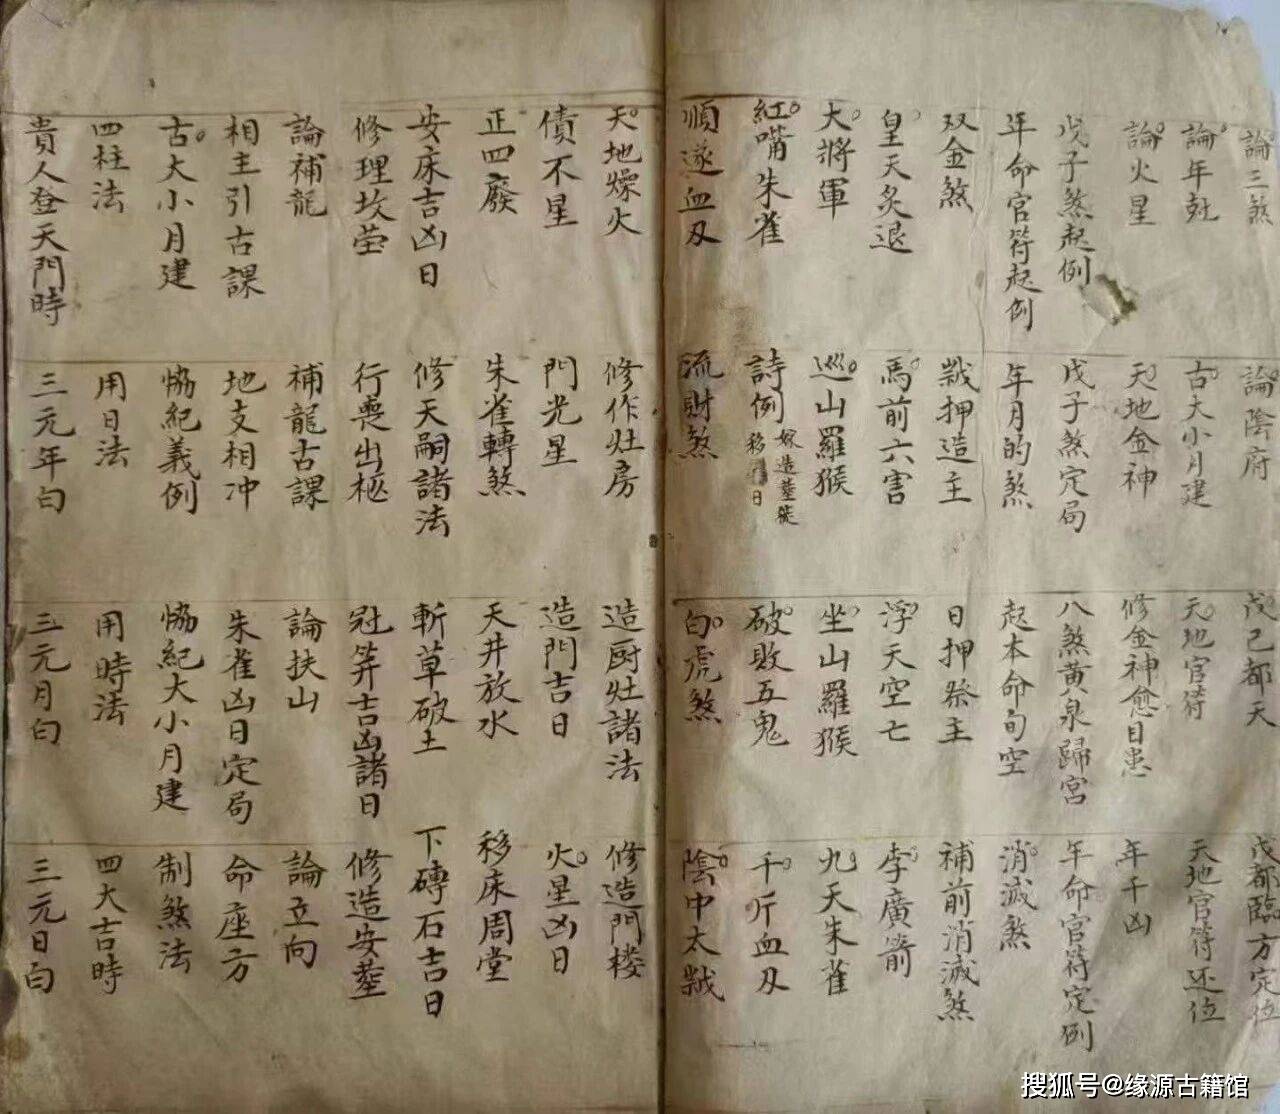 論三煞 論陰府 戊己都天 戊都臨方定位
論年尅 古大小月建 天地官符 天地官符还位
論火星 天地金神 修金神愈目患 年干凶
戊子煞起例 戊子煞定局 八煞黄泉歸宮 年命官符定例
年命官符起例 年月的煞 起本命旬空 消滅煞
双金煞 戳押造主 日押祭主 補前消滅煞
皇天炙退 馬前六害 浮天空亡 李廣箭
大將軍 巡山羅猴 坐山羅猴 九天朱雀
紅嘴朱雀 詩例 嫁造塟徙 移日 破敗五鬼 千斤血刃
順逆血刃 流財煞 白虎煞 陰中太戳
天地燥火 修作灶房 造厨灶諸法 修造門楼
債不星 門光星 造門吉日 火星凶日
正四廢 朱雀轉煞 天井放水 移床周堂
安床吉凶日 修天嗣諸法 斬草破土 下磚石吉日
修理坟塋 行喪出柩 冠笄吉凶諸日 修造安塟
論補龍 補龍古課 論扶山 論立向
相主引古課 地支相冲 朱雀凶日定局 命座方
古大小月建 恊紀義例 恊紀大小月建 制煞法
四柱法 用日法 用時法 四大吉時
貴人登天門時 三元年白 三元月白 三元日白
搜狐号@缘源古籍馆